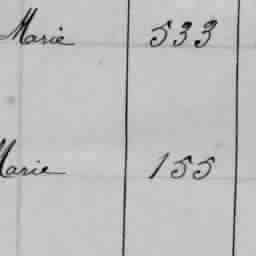 Marie 533
Marie 155